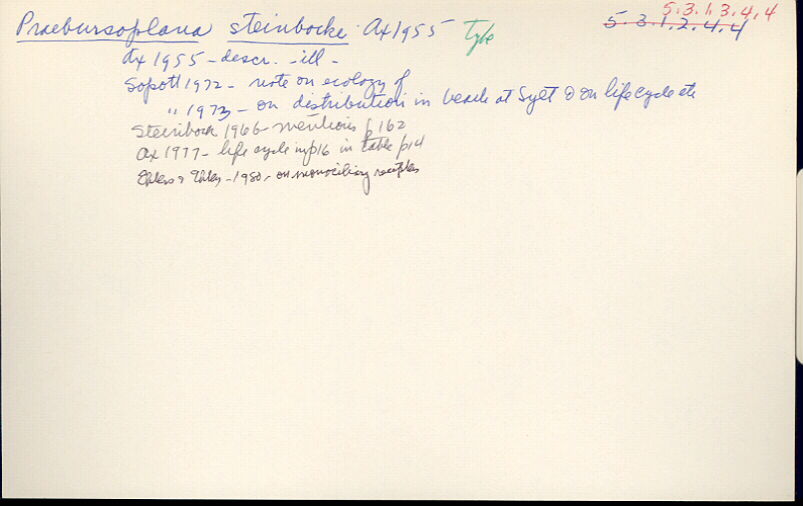 Praebursoplana steinbocki Ax 1955 Type
5.3.1.3.4.4
5.3.1.2.4.4
Ax 1955 - descr. - ill -
Sopott 1972 - note on ecology of
" 1973 - on distribution in beach at Sylt & on life cycle etc
Steinbock 1966 - mentions p 162
Ax 1977 - life cycle in p16 in table p14
Ehlers & Ehlers - 1980 - on monociliary receptors